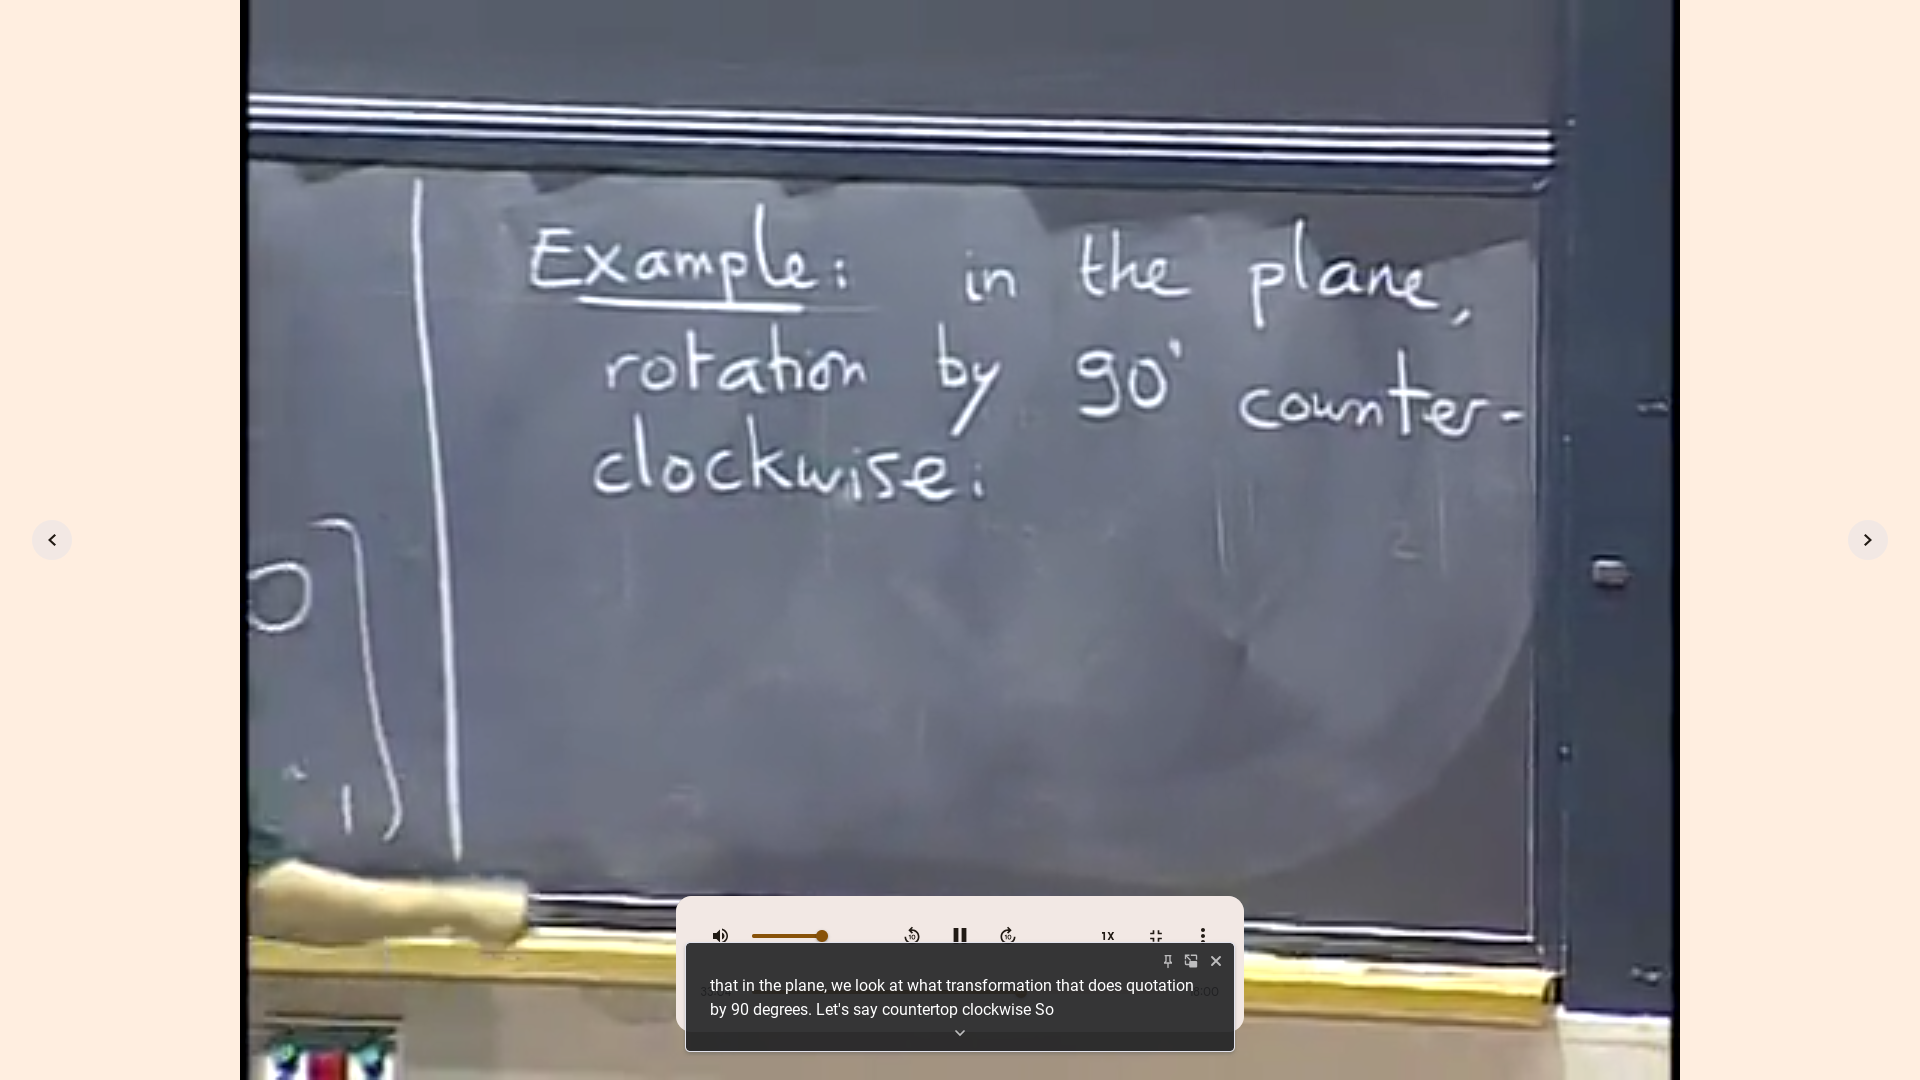 Example: in the plane,
rotation by 90° counter-
clockwise:
0
1
1X
that in the plane, we look at what transformation that does quotation
by 90 degrees. Let's say countertop clockwise So